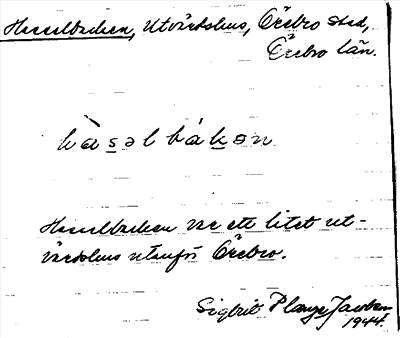 Hasselbacken, Utvärdshus, Örebro stad,
Örebro län.
hàsəlbákən
Hasselbacken var ett litet ut-
värdshus utanför Örebro.
Sigbrit Plange Jacobson
1944.